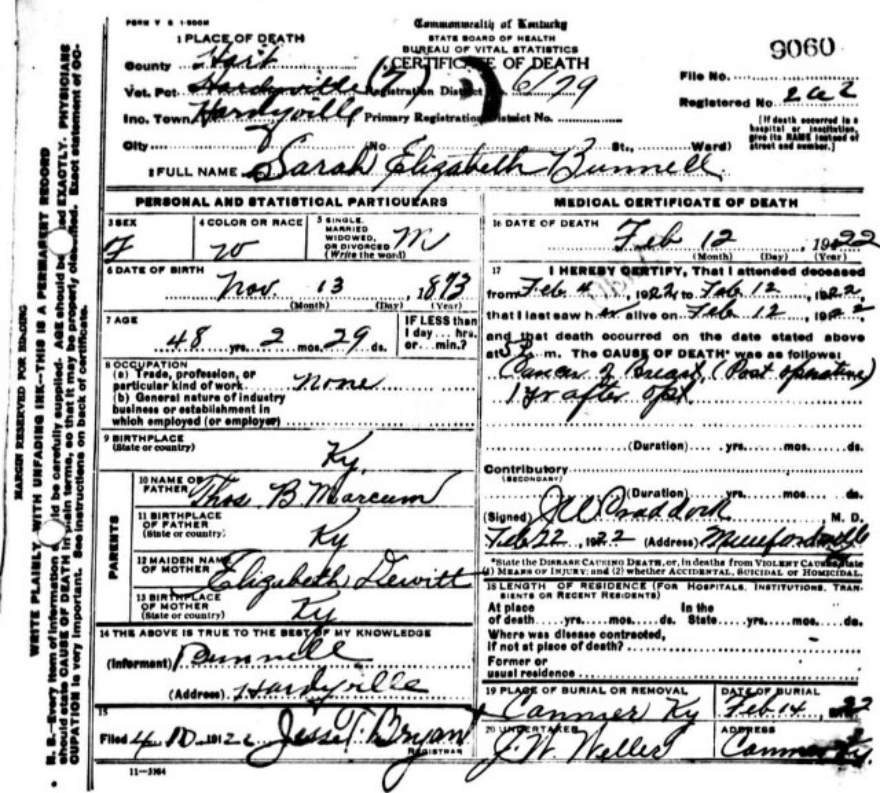 FORM V S 1-500M
Commonwealth of Kentucky
STATE BOARD OF HEALTH
BUREAU OF VITAL STATISTICS
CERTIFICATE OF DEATH
1 PLACE OF DEATH
County Hart
Vot. Pct Hardyville (7) Registration District No. 6/79
Inc. Town Hardyville Primary Registration District No.
City (No. St., Ward)
9060
File No.
Registered No 262
[If death occurred in a hospital or institution, give its NAME instead of street and number.]
2 FULL NAME Sarah Elizabeth Bunnell
PERSONAL AND STATISTICAL PARTICULARS
3 SEX F
4 COLOR OR RACE W
5 SINGLE, MARRIED WIDOWED, OR DIVORCED (Write the word) M
6 DATE OF BIRTH
Nov. 13, 1873
(Month) (Day) (Year)
7 AGE
48 yrs. 2 mos. 29 ds.
IF LESS than 1 day... hrs. or... min.?
8 OCCUPATION
(a) Trade, profession, or particular kind of work None
(b) General nature of industry business or establishment in which employed (or employer)
9 BIRTHPLACE
(State or country) Ky.
PARENTS
10 NAME OF FATHER Thos. B Marcum
11 BIRTHPLACE OF FATHER
(State or country) Ky
12 MAIDEN NAME OF MOTHER Elizabeth Dewitt
13 BIRTHPLACE OF MOTHER
(State or country) Ky
14 THE ABOVE IS TRUE TO THE BEST OF MY KNOWLEDGE
(Informant) Bunnell
(Address) Hardyville
15
Filed 4 10, 192 Jesse T. Bryant
REGISTRAR
11-3164
MEDICAL CERTIFICATE OF DEATH
16 DATE OF DEATH
Feb 12, 1922
(Month) (Day) (Year)
17 I HEREBY CERTIFY, That I attended deceased
from Feb 4, 1922 to Feb 12, 1922,
that I last saw her alive on Feb 12, 1922
and that death occurred on the date stated above
at 5 m. The CAUSE OF DEATH* was as follows:
Cancer of Breast, (Post operative)
1 yr after opt
(Duration) yrs. mos. ds.
Contributory
(SECONDARY)
(Duration) yrs. mos. ds.
(Signed) J W Craddock M. D.
Feb 22, 1922 (Address) Munfordville
*State the DISEASE CAUSING DEATH, or, in deaths from VIOLENT CAUSES, state
(1) MEANS OF INJURY; and (2) whether ACCIDENTAL, SUICIDAL or HOMICIDAL.
18 LENGTH OF RESIDENCE (FOR HOSPITALS, INSTITUTIONS, TRANSIENTS OR RECENT RESIDENTS)
At place of death yrs. mos. ds. In the State yrs. mos. ds.
Where was disease contracted, if not at place of death?
Former or usual residence
19 PLACE OF BURIAL OR REMOVAL
Canmer Ky
DATE OF BURIAL
Feb 14, 1922
20 UNDERTAKER
J. W. Weller
ADDRESS
Canmer Ky.
MARGIN RESERVED FOR BINDING
WRITE PLAINLY, WITH UNFADING INK—THIS IS A PERMANENT RECORD
N. B.—Every item of information should be carefully supplied. AGE should be stated EXACTLY. PHYSICIANS
should state CAUSE OF DEATH in plain terms, so that it may be properly classified. Exact statement of OC-
CUPATION is very important. See instructions on back of certificate.